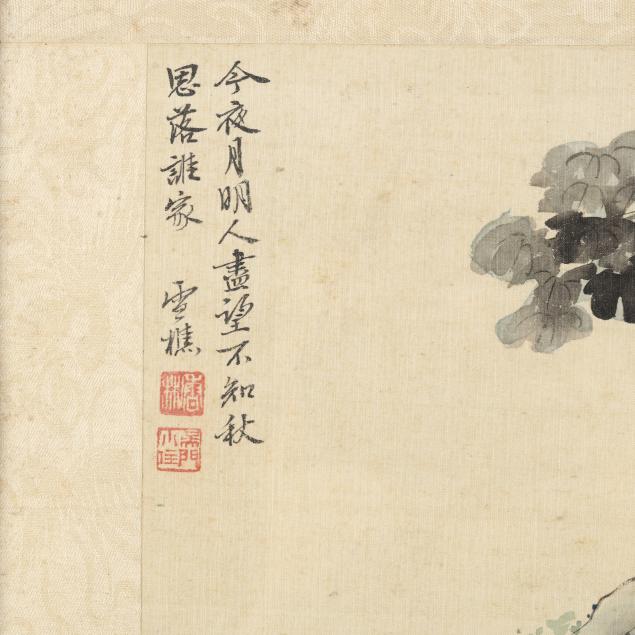 今夜月明人盡望不知秋
思落誰家
雪樵